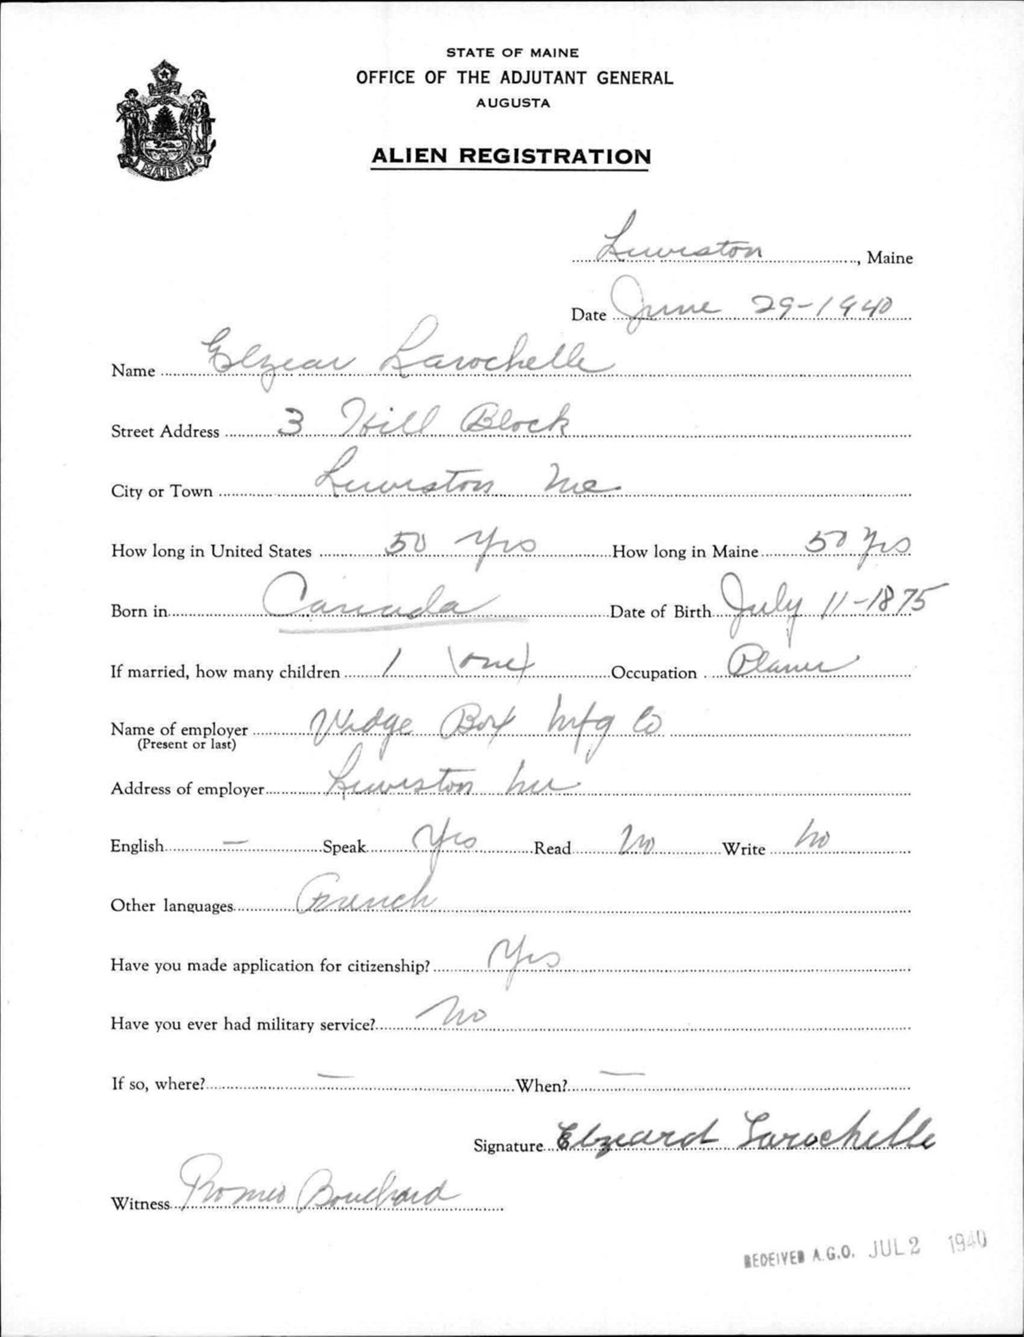 STATE OF MAINE
OFFICE OF THE ADJUTANT GENERAL
AUGUSTA
MAINE
ALIEN REGISTRATION
Lewiston, Maine
Date June 29-1940
Name Elzear Larochelle
Street Address 3 Hill Block
City or Town Lewiston Me
How long in United States 50 Yrs How long in Maine 50 Yrs
Born in Canada Date of Birth July 11-1875
If married, how many children 1 (one) Occupation Planer
Name of employer Wedge Box Mfg Co
(Present or last)
Address of employer Lewiston Me
English — Speak Yes Read No Write No
Other languages French
Have you made application for citizenship? Yes
Have you ever had military service? No
If so, where? — When? —
Signature Elzeard Larochelle
Witness Romeo Bouchard
RECEIVED A.G.O. JUL 2 1940